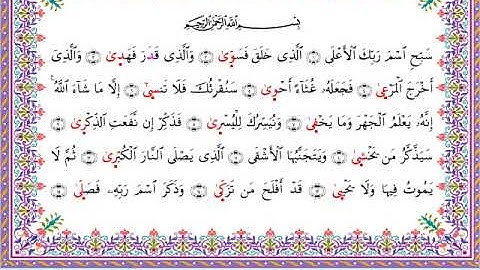 بِسْمِ ٱللَّهِ ٱلرَّحْمَـٰنِ ٱلرَّحِيمِ
سَبِّحِ ٱسْمَ رَبِّكَ ٱلْأَعْلَى ۝ ٱلَّذِى خَلَقَ فَسَوَّىٰ ۝ وَٱلَّذِى قَدَّرَ فَهَدَىٰ ۝ وَٱلَّذِىٓ
أَخْرَجَ ٱلْمَرْعَىٰ ۝ فَجَعَلَهُۥ غُثَآءً أَحْوَىٰ ۝ سَنُقْرِئُكَ فَلَا تَنسَىٰٓ ۝ إِلَّا مَا شَآءَ ٱللَّهُ ۚ
إِنَّهُۥ يَعْلَمُ ٱلْجَهْرَ وَمَا يَخْفَىٰ ۝ وَنُيَسِّرُكَ لِلْيُسْرَىٰ ۝ فَذَكِّرْ إِن نَّفَعَتِ ٱلذِّكْرَىٰ ۝
سَيَذَّكَّرُ مَن يَخْشَىٰ ۝ وَيَتَجَنَّبُهَا ٱلْأَشْقَى ۝ ٱلَّذِى يَصْلَى ٱلنَّارَ ٱلْكُبْرَىٰ ۝ ثُمَّ لَا
يَمُوتُ فِيهَا وَلَا يَحْيَىٰ ۝ قَدْ أَفْلَحَ مَن تَزَكَّىٰ ۝ وَذَكَرَ ٱسْمَ رَبِّهِۦ فَصَلَّىٰ ۝